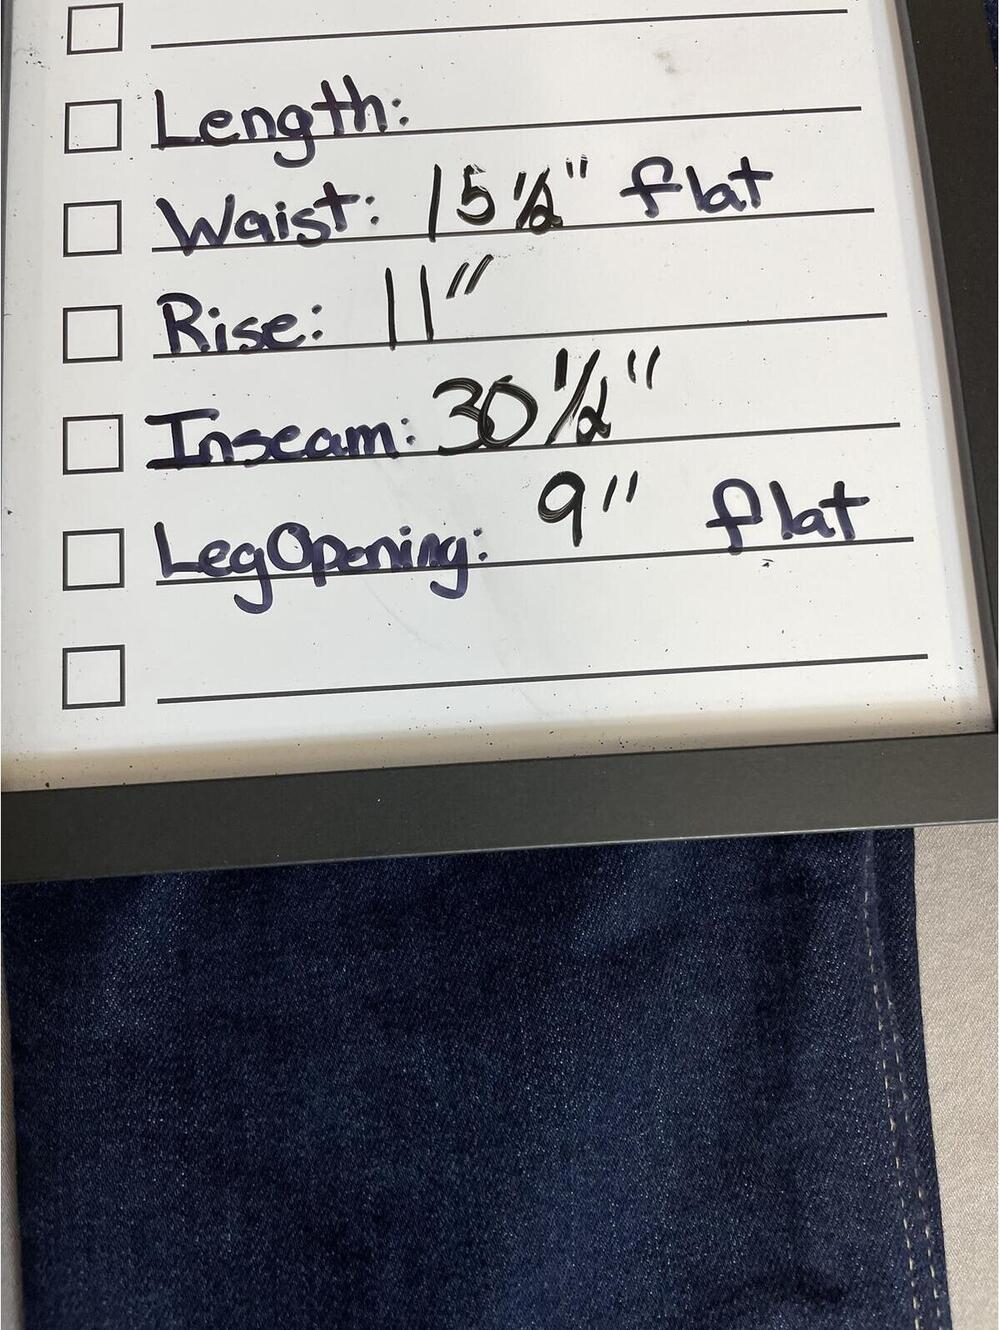 Length:
Waist: 15 1/2" flat
Rise: 11"
Inseam: 30 1/2"
Leg Opening: 9" flat